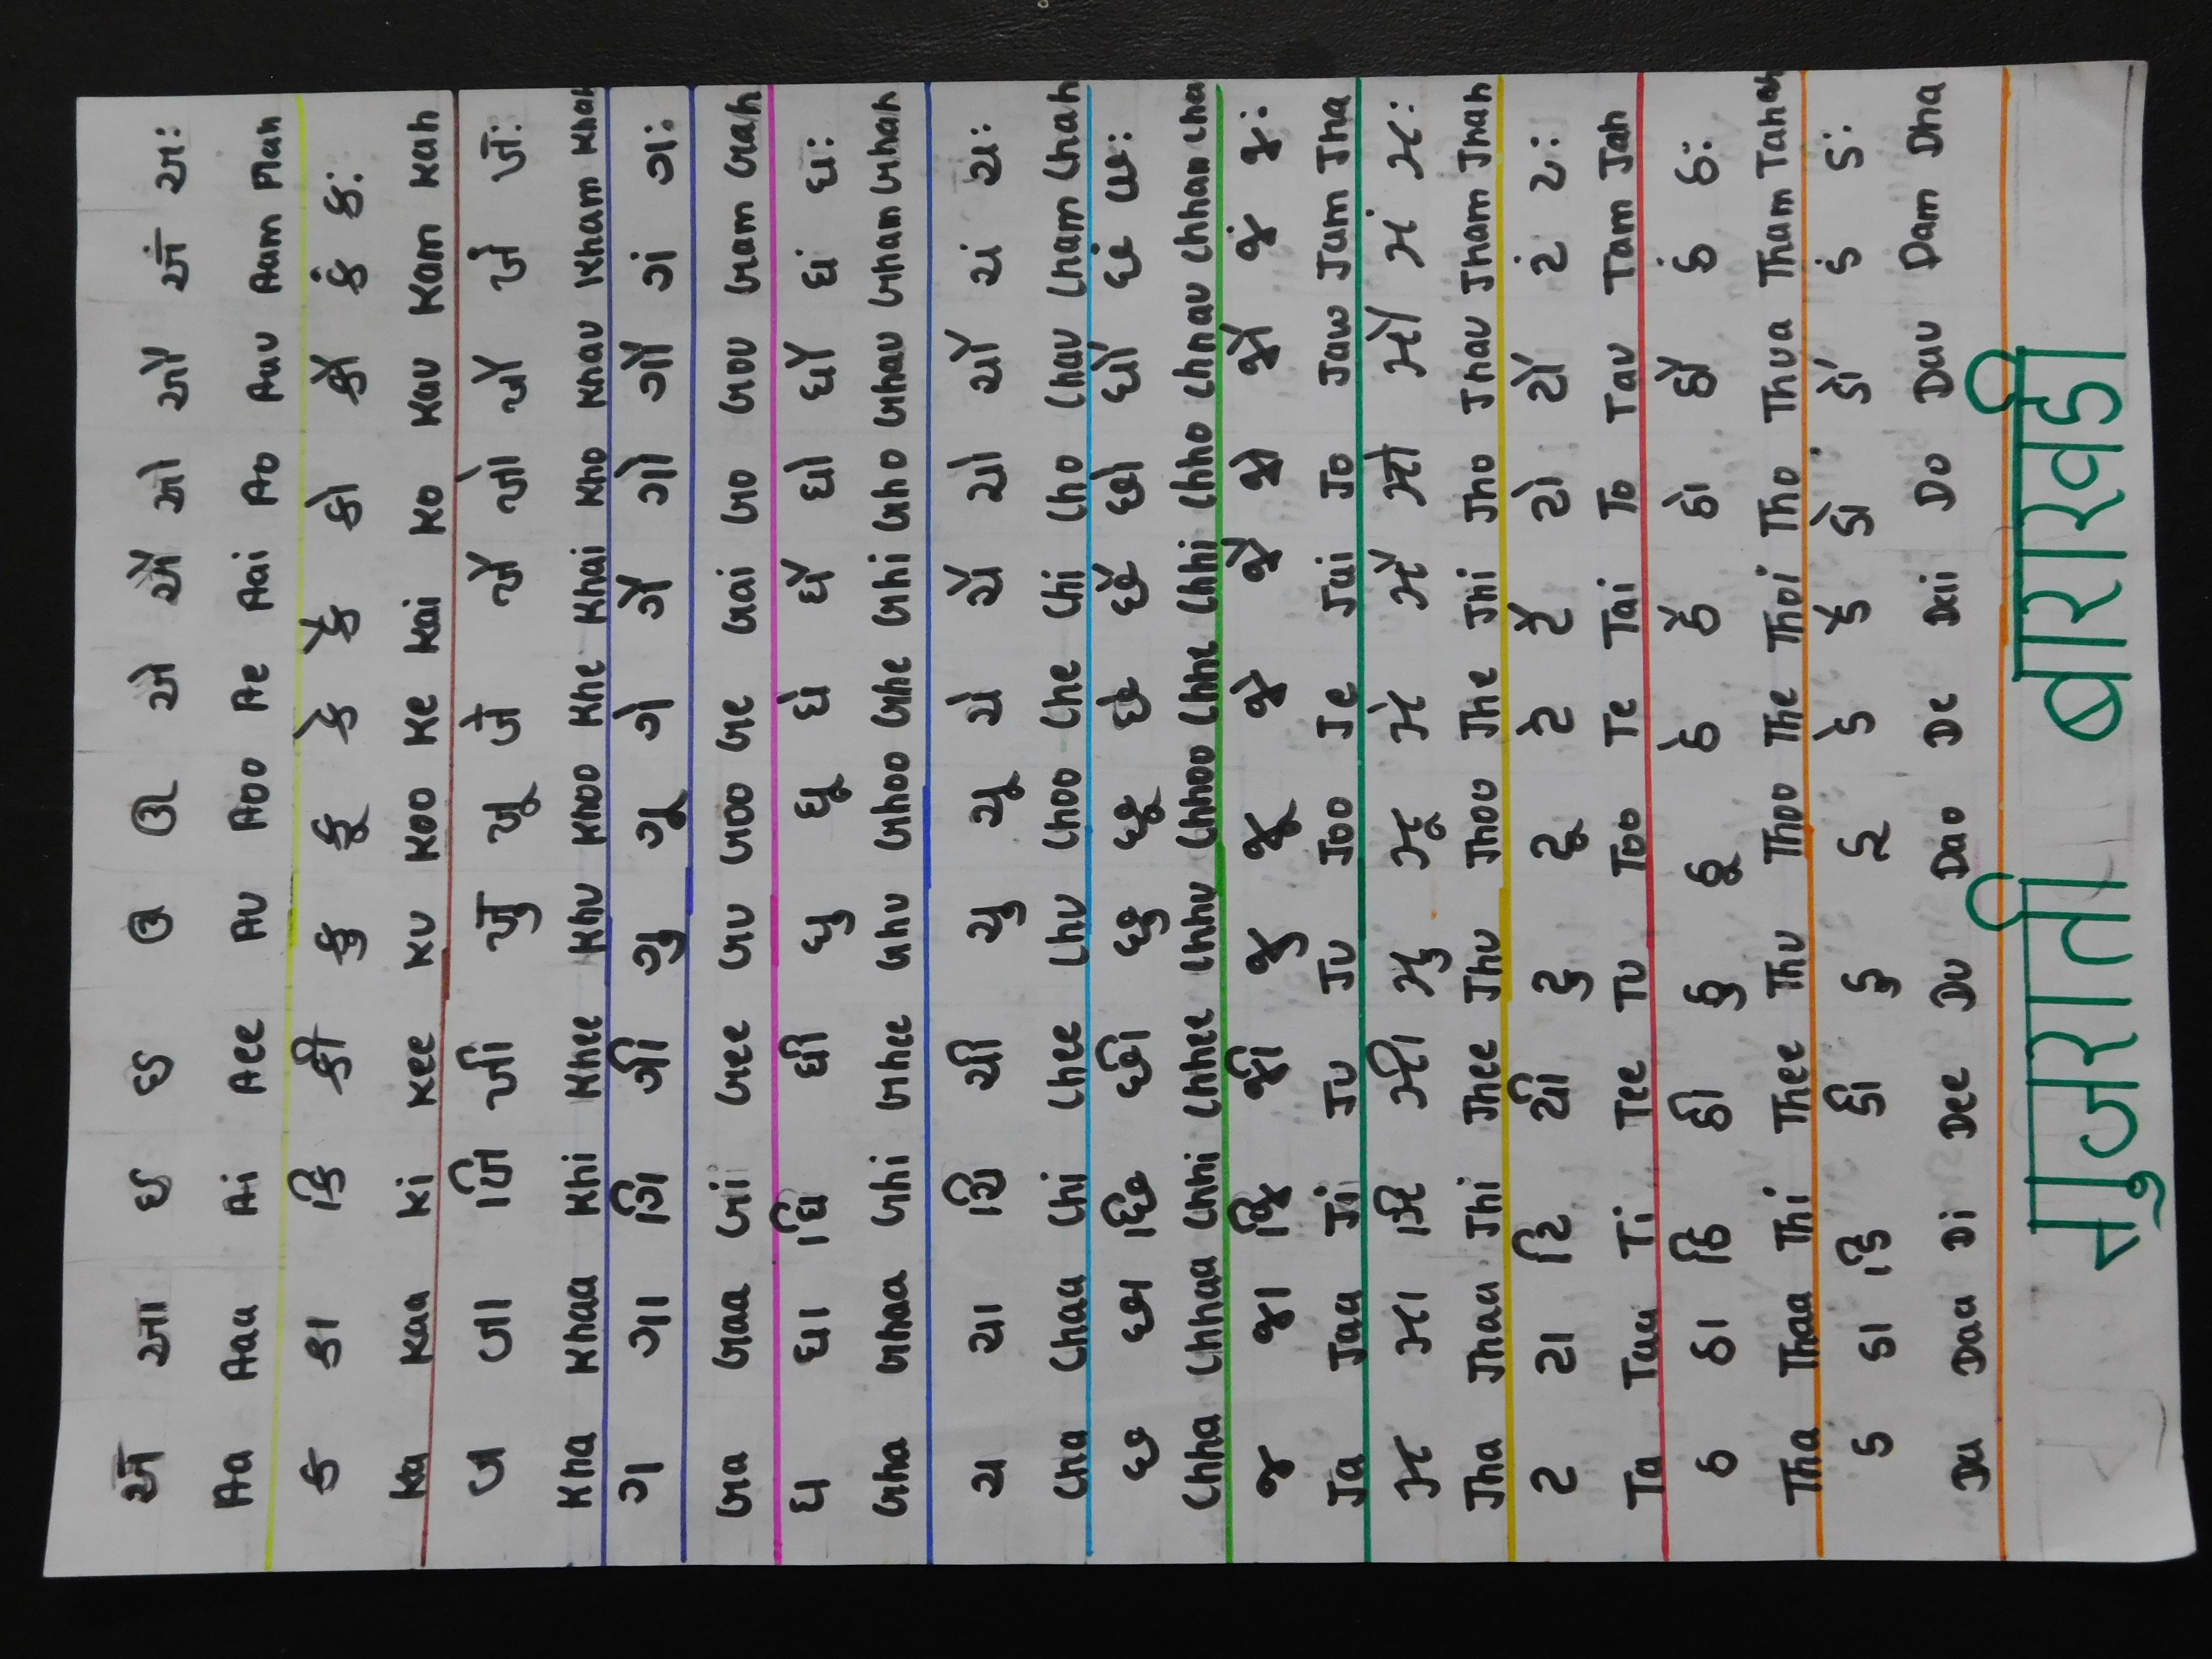 અ આ ઇ ઈ ઉ ઊ એ ઐ ઓ ઔ અં અઃ
Aa Aaa Ai Aee Au Aoo Ae Aai Ao Aau Aam Aah
ક કા કિ કી કુ કૂ કે કૈ કો કૌ કં કઃ
Ka Kaa Ki Kee Ku Koo Ke Kai Ko Kau Kam Kah
ખ ખા ખિ ખી ખુ ખૂ ખે ખૈ ખો ખૌ ખં ખઃ
Kha Khaa Khi Khee Khu Khoo Khe Khai Kho Khau Kham Khah
ગ ગા ગિ ગી ગુ ગૂ ગે ગૈ ગો ગૌ ગં ગઃ
Ga Gaa Gi Gee Gu Goo Ge Gai Go Gou Gam Gah
ઘ ઘા ઘિ ઘી ઘુ ઘૂ ઘે ઘૈ ઘો ઘૌ ઘં ઘઃ
Gha Ghaa Ghi Ghee Ghu Ghoo Ghe Ghi Gho Ghau Gham Ghah
ચ ચા ચિ ચી ચુ ચૂ ચે ચૈ ચો ચૌ ચં ચઃ
Cha Chaa Chi Chee Chu Choo Che Chi Cho Chau Cham Chah
છ છા છિ છી છુ છૂ છે છૈ છો છૌ છં છઃ
Chha Chhaa Chhi Chhee Chhu Chhoo Chhe Chhi Chho Chhau Chham Chha
જ જા જિ જી જુ જૂ જે જૈ જો જૌ જં જઃ
Ja Jaa Ji Ju Ju Joo Je Jai Jo Jaw Jam Jha
ઝ ઝા ઝિ ઝી ઝુ ઝૂ ઝે ઝૈ ઝો ઝૌ ઝં ઝઃ
Jha Jhaa Jhi Jhee Jhu Jhou Jhe Jhi Jho Jhau Jham Jhah
ટ ટા ટિ ટી ટુ ટૂ ટે ટૈ ટો ટૌ ટં ટઃ
Ta Taa Ti Tee Tu Too Te Tai To Tau Tam Jah
ઠ ઠા ઠિ ઠી ઠુ ઠૂ ઠે ઠૈ ઠો ઠૌ ઠં ઠઃ
Tha Thaa Thi Thee Thu Thoo The Thoi Tho Thua Tham Tahah
ડ ડા ડિ ડી ડુ ડૂ ડે ડૈ ડો ડૌ ડં ડઃ
Da Daa Di Dee Du Dao De Dai Do Dau Dam Dha
गुजराती बाराखडी